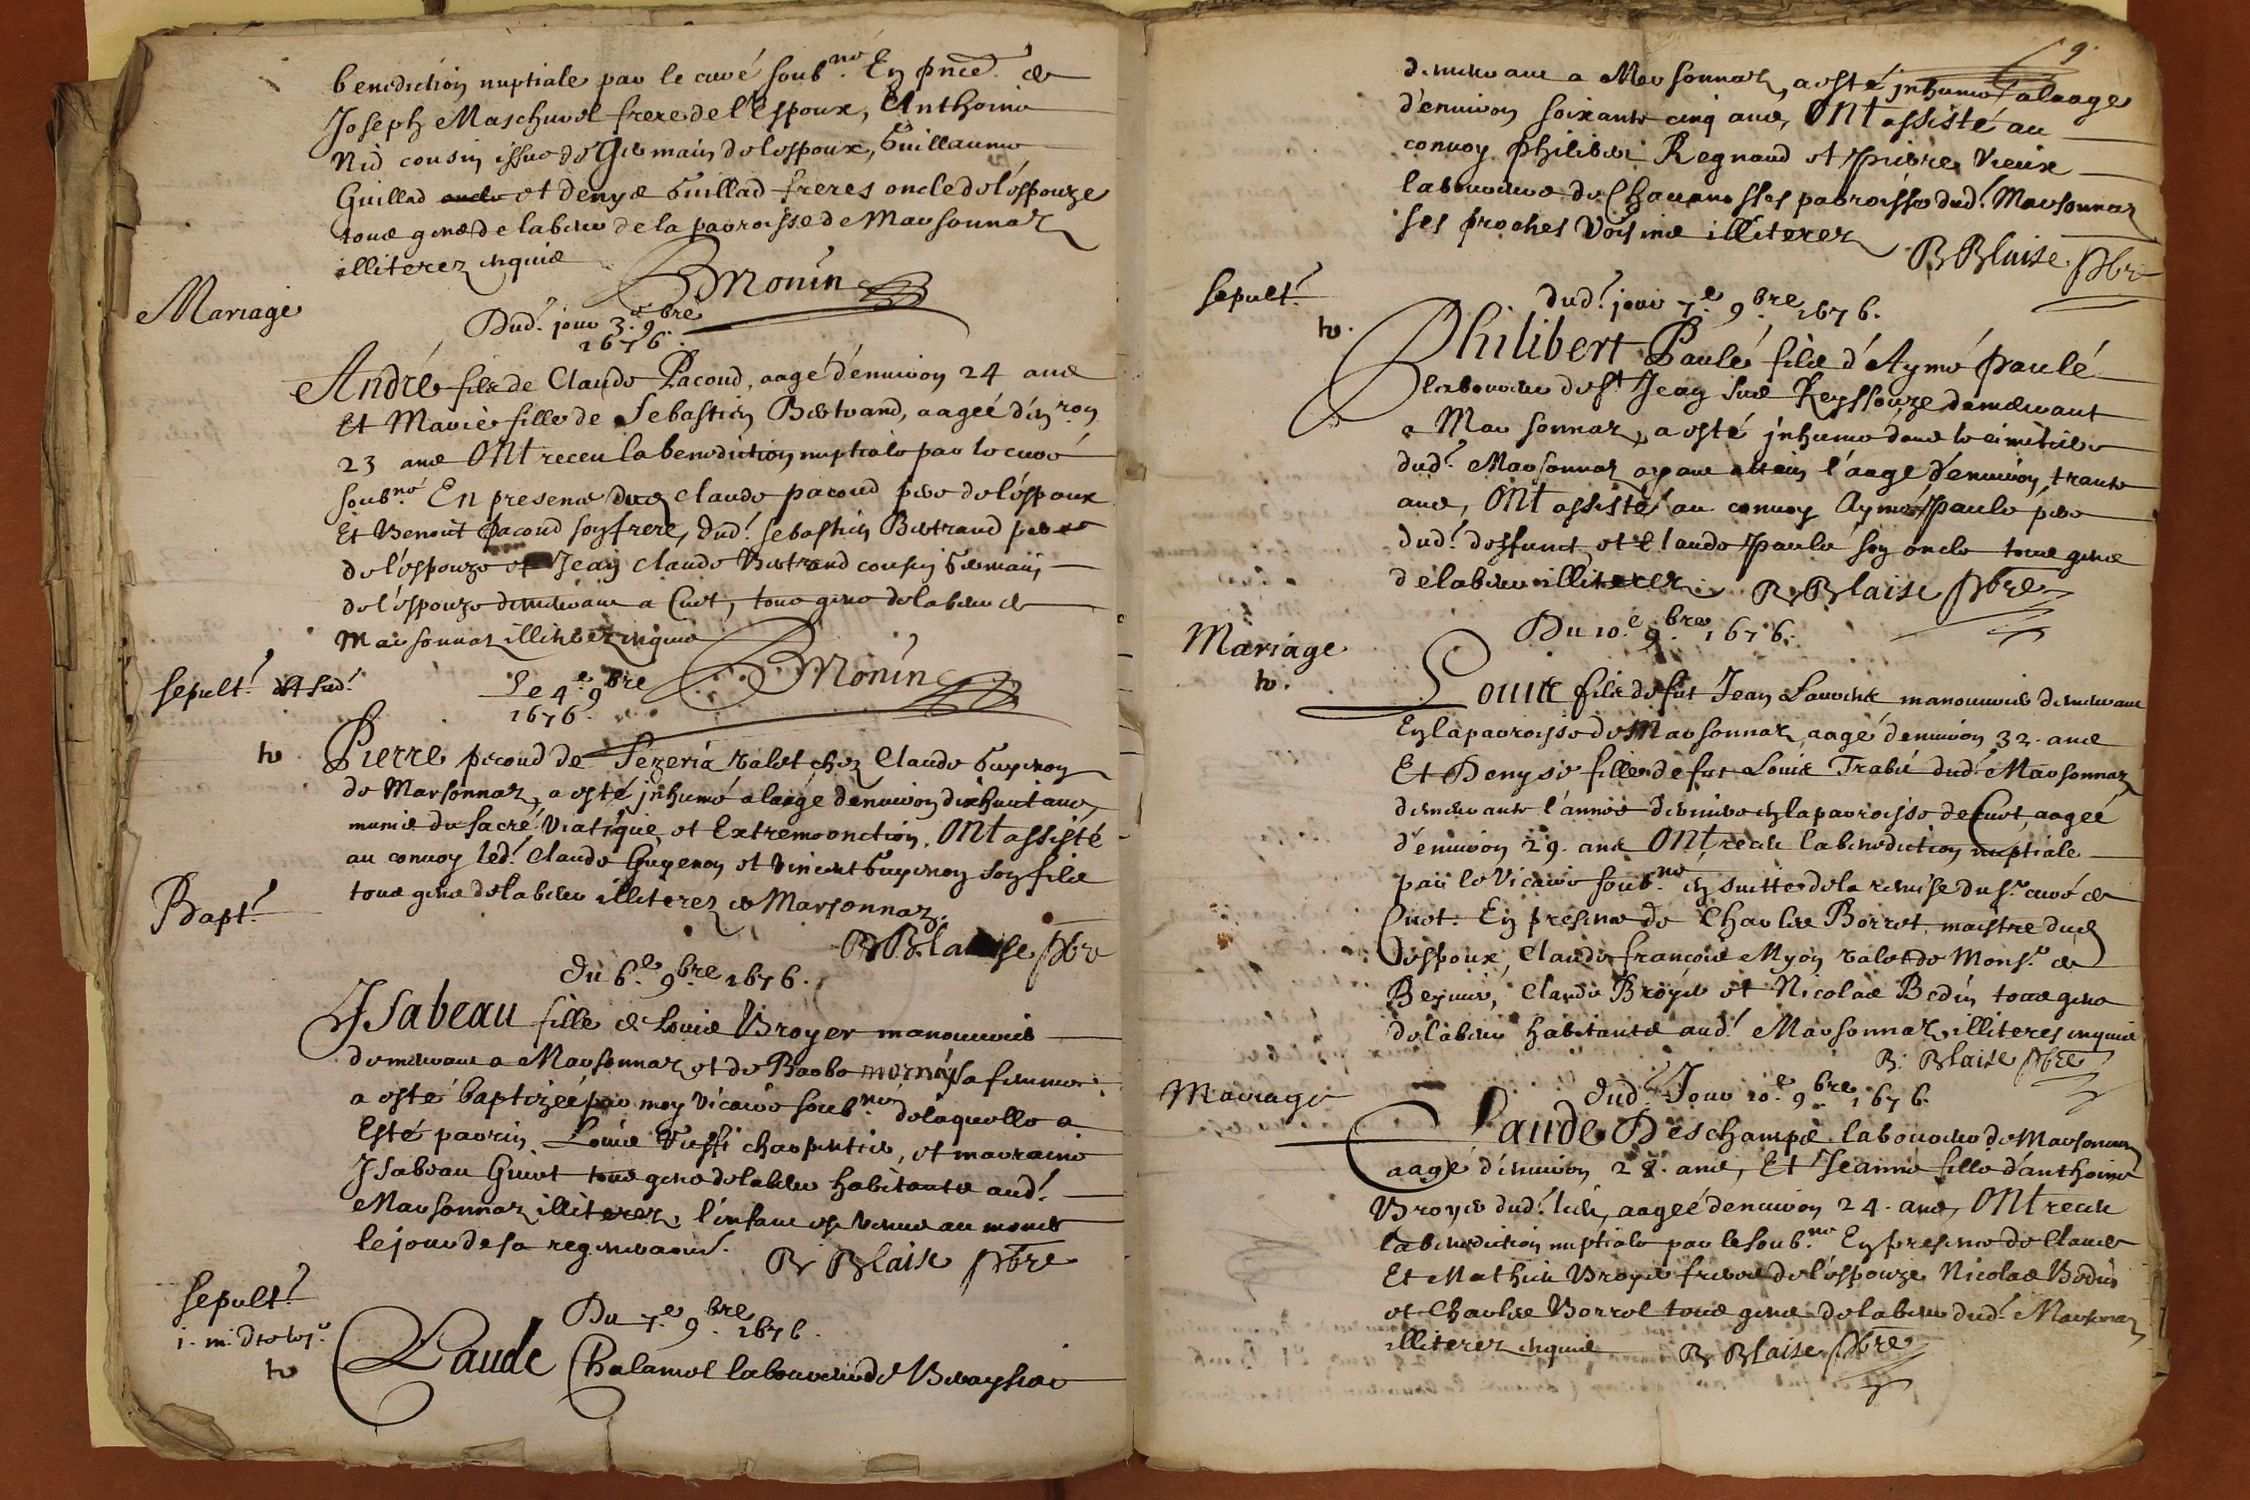 benediction nuptiale par le curé soub.né En pnce. de
Joseph Maschurel frere de l'Espoux, Anthoine
Nid cousin issus de Germain de lespoux, Guillaume
Guillad et Denys Guillad freres oncle de léspouze
tous gens de labeur de la parroisse de Marsonnaz
illiterez enquis
BMonin
Mariage
Dud. jour 3.e 9.bre
1676.
André fils de Claude Pacoud, aagé d'enuiron 24 ans
Et Marie fille de Sebastien Bertrand, aageé d'en.ron
23 ans ONt receu la benediction nuptiale par le curé
soub.né En presence dud. Claude pacoud pere de léspoux
Et Benoit Pacoud son frere, dud. sebastien Bertrand pere
de léspouze et Jean Claude Bertrand cousin Germain
de léspouze demeurans a Curt, tous gens de labeur de
Marsonnaz illiterez enquis
BMonin
sepult.
Le 4.e 9.bre
1676.
Pierre pecoud de Lezeria valet chez Claude Guyenon
de Marsonnaz, a esté jnhumé a laagé d'enuiron dixhuit ans,
munie du sacré Viatique et Extremeonction, ONt assisté
au conuoy led. Claude Guyenon et Vincent Guyenon son fils
tous gens de labeur illiterez de Marsonnaz.
R Blaise pbre
Bapt.
du 6.e 9.bre 1676.
Jsabeau fille de Louis Broyer manouurier
demeurant a Marsonnaz et de Barbe sa femme
a esté baptizée par moy vicaire soub.né de laquelle a
Esté parrin Louis charpentier, et marraine
Jsabeau Guiot tous gens de labeur habitants aud.
Marsonnaz illiterez, l'enfant est venue au monde
le jour de sa regeneraon.
R Blaise pbre
Sepult.
to
Du 7.e 9.bre 1676.
Claude Chalamel laboureur de

9
demeurant a Marsonnaz, a esté jnhumé a laage
d'enuiron soixante cinq ans, ONt assisté au
conuoy philibert Regnaud et pierre Vieux
laboureurs de Chauanosses parroisse dud. Marsonnaz
ses proches Voisins illiterez
R Blaise pbre
sepult.
to.
dud. jour 7.e 9.bre 1676.
Philibert Paulé fils d'Aymé paulé
laboureur de st Jean sur Reyssouze demeurant
a Marsonnaz, a esté jnhumé dans le cimitiere
dud. Marsonnaz ayant attein l'aage d'enuiron trante
ans, ONt assisté au conuoy Aymé paulé pere
dud. deffunct et Claude paulé son oncle tous gens
de labeur illiterez. R Blaise pbre
Mariage
to.
Du 10.e 9.bre 1676.
Louis fils de fut Jean manouurier demeurant
En la parroisse de Marsonnaz aagé d'enuiron 32. ans
Et Denyse fille de fut Louis Trabié dud. Marsonnaz
demeurante l'année derniere en la parroisse de Curt, aageé
d'enuiron 29. ans ONt receu la benediction nuptiale
par le Vicaire soub.né en suitte de la remise du s.r curé de
Curt. En presence de Charles Borret maistre dud.
Espoux, Claude françois Myon valet de Mons.r de
Claude Broyer et Nicolas Bedin tous gens
de labeur habitants aud. Marsonnaz illiteres enquis
R. Blaise pbre
Mariage
dud. Jour 10.e 9.bre 1676.
Claude Deschamps laboureur de Marsonnaz
aagé d'enuiron 28. ans, Et Jeanne fille d'anthoine
Broyer dud. lieu, aageé d'enuiron 24. ans, ONt receu
la benediction nuptiale par le soub.né En presence de Claude
Et Mathieu Broyer freres de l'éspouze Nicolas Bedin
et Charles Borrel tous gens de labeur dud. Marsonnaz
illiterez enquis R Blaise pbre